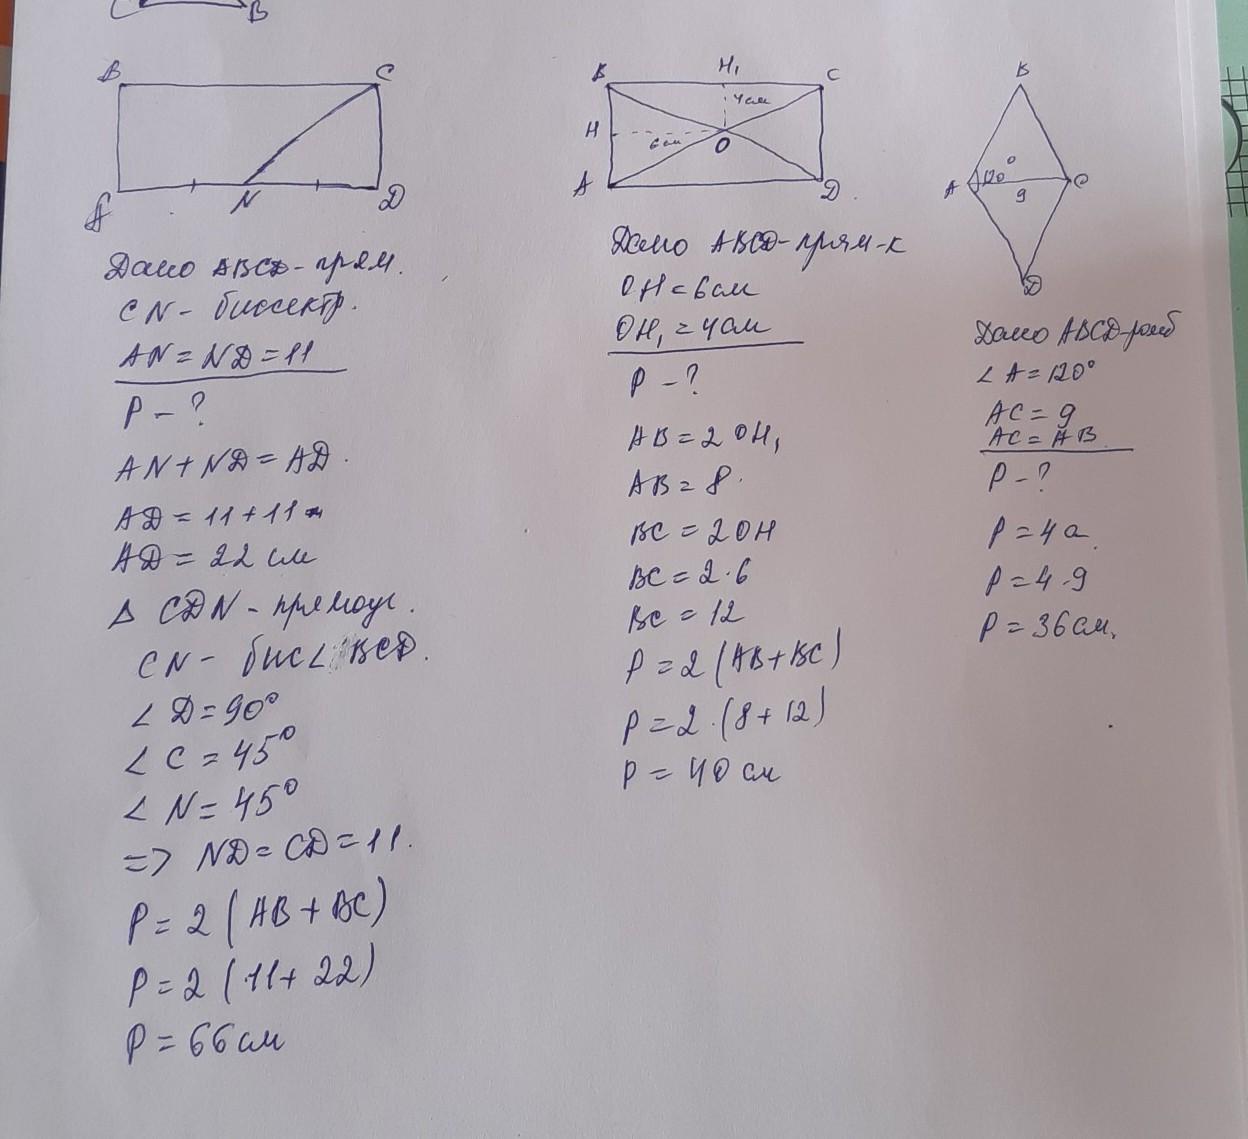 C B
B C
A N D
Дано ABCD - прям.
CN - биссектр.
AN = ND = 11
P - ?
AN + ND = AD.
AD = 11 + 11
AD = 22 см
Δ CDN - прямоуг.
CN - бис ∠ BCD.
∠ D = 90°
∠ C = 45°
∠ N = 45°
=> ND = CD = 11.
P = 2 (AB + BC)
P = 2 (11 + 22)
P = 66 см
B H₁ C
4 см
H
6 см O
A D
Дано ABCD - прям-к
OH = 6 см
OH₁ = 4 см
P - ?
AB = 2 OH₁
AB = 8
BC = 2 OH
BC = 2 · 6
BC = 12
P = 2 (AB + BC)
P = 2 · (8 + 12)
P = 40 см
B
A 120° C
9
D
Дано ABCD - ромб
∠ A = 120°
AC = 9
AC = AB
P - ?
P = 4a
P = 4 · 9
P = 36 см.